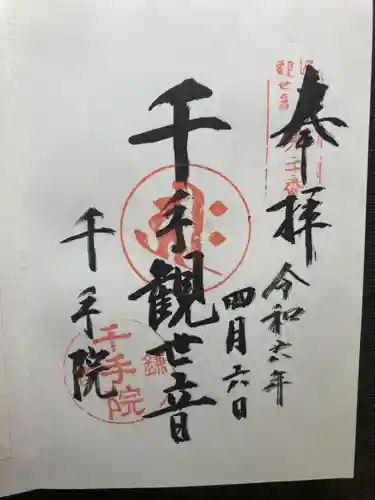 奉拝
令和六年
四月六日
千手観世音
千手院
千手院
鎌